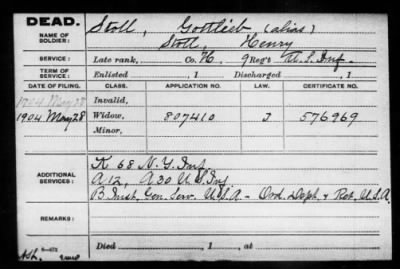 DEAD.
NAME OF SOLDIER:
Stoll, Gottlieb (alias)
Stoll, Henry
SERVICE: Late rank, Co. H, 9 Reg't U.S. Inf.
TERM OF SERVICE: Enlisted , 1 Discharged , 1
DATE OF FILING. CLASS. APPLICATION NO. LAW. CERTIFICATE NO.
1904 May 28 Invalid,
1904 May 28 Widow, 807410 J 576969
Minor,
ADDITIONAL SERVICES:
K 68 N.Y. Inf
A 12, A 30 U.S. Inf
B Inst. Gen. Serv. U.S.A - Ord. Deph. & Ret. U.S.A.
REMARKS:
Died , 1 , at